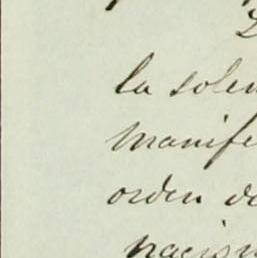 la solem
manife
orden de
nacion